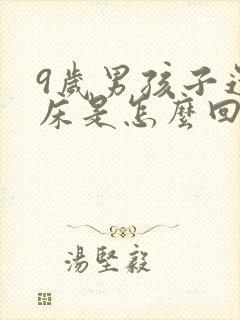 9歲男孩子還
床是怎麼回
湯堅毅